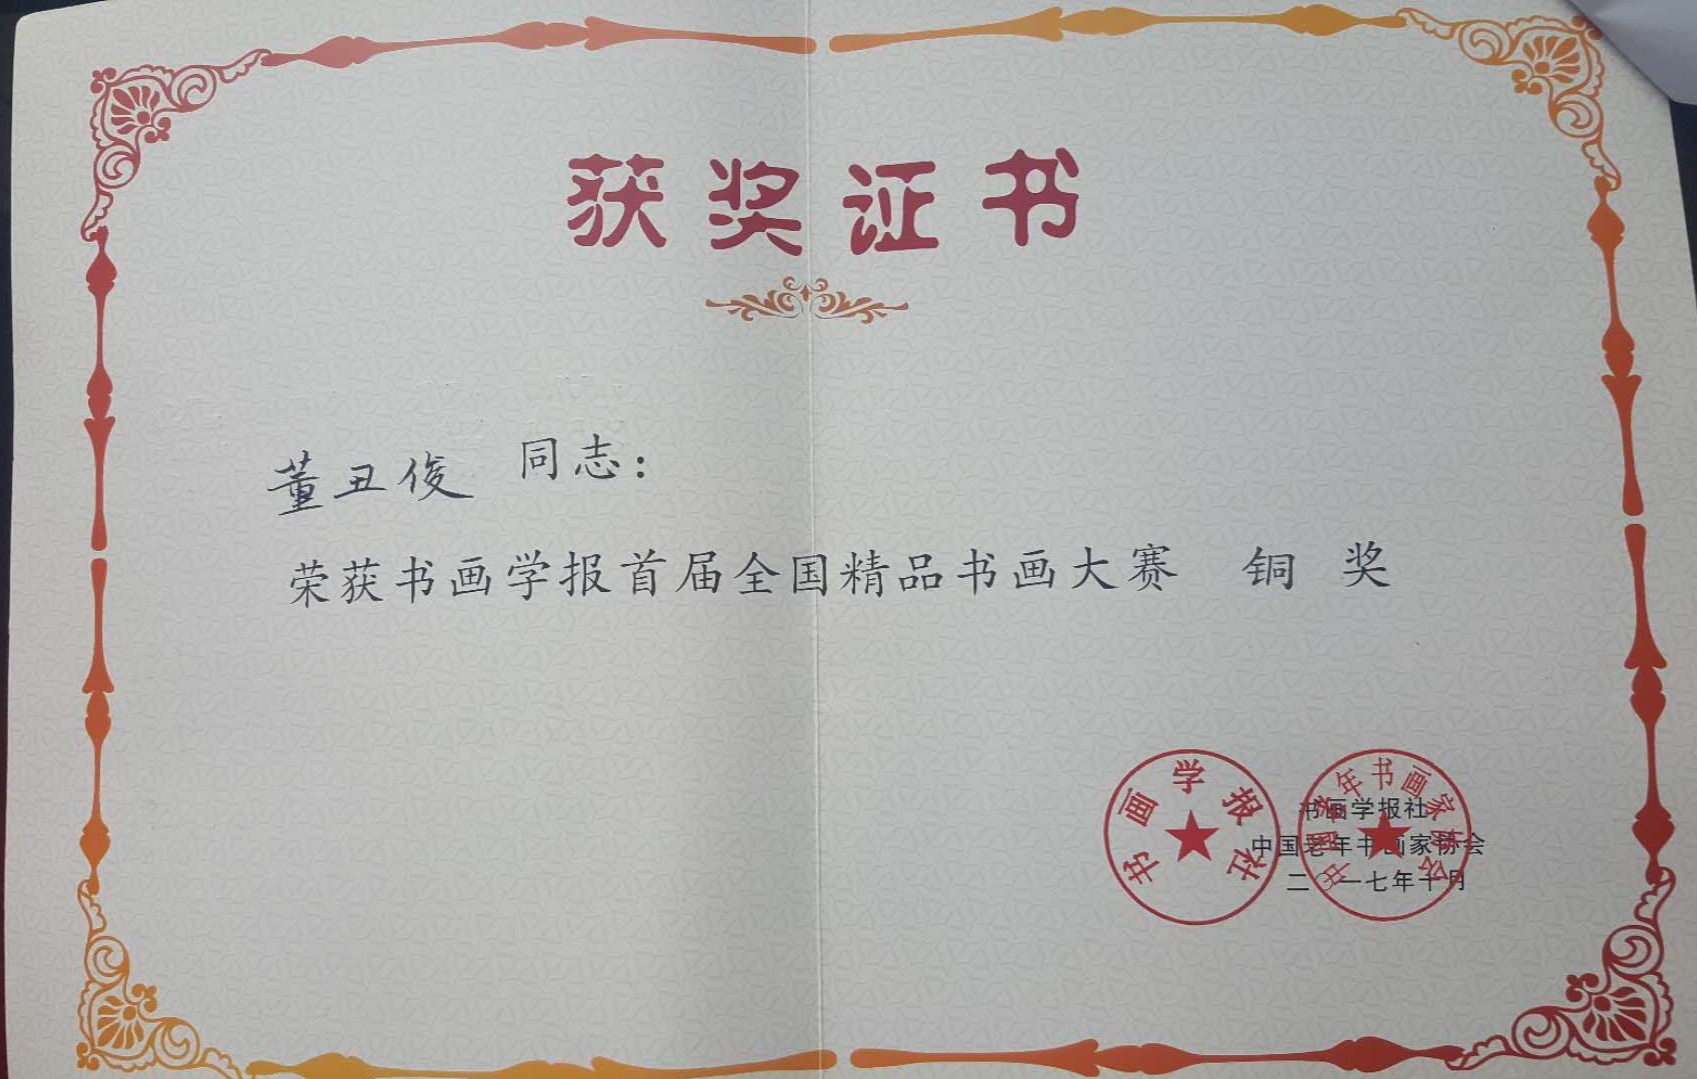 获奖证书
董丑俊 同志：
荣获书画学报首届全国精品书画大赛 铜 奖
书画学报社
中国老年书画家协会
书画学报社
中国老年书画家协会
二〇一七年十月